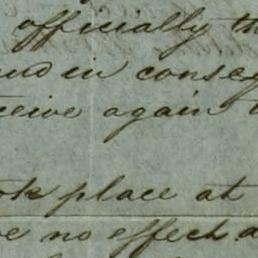 officially th
and in conseq
ceive again
ook place at
e no effect a